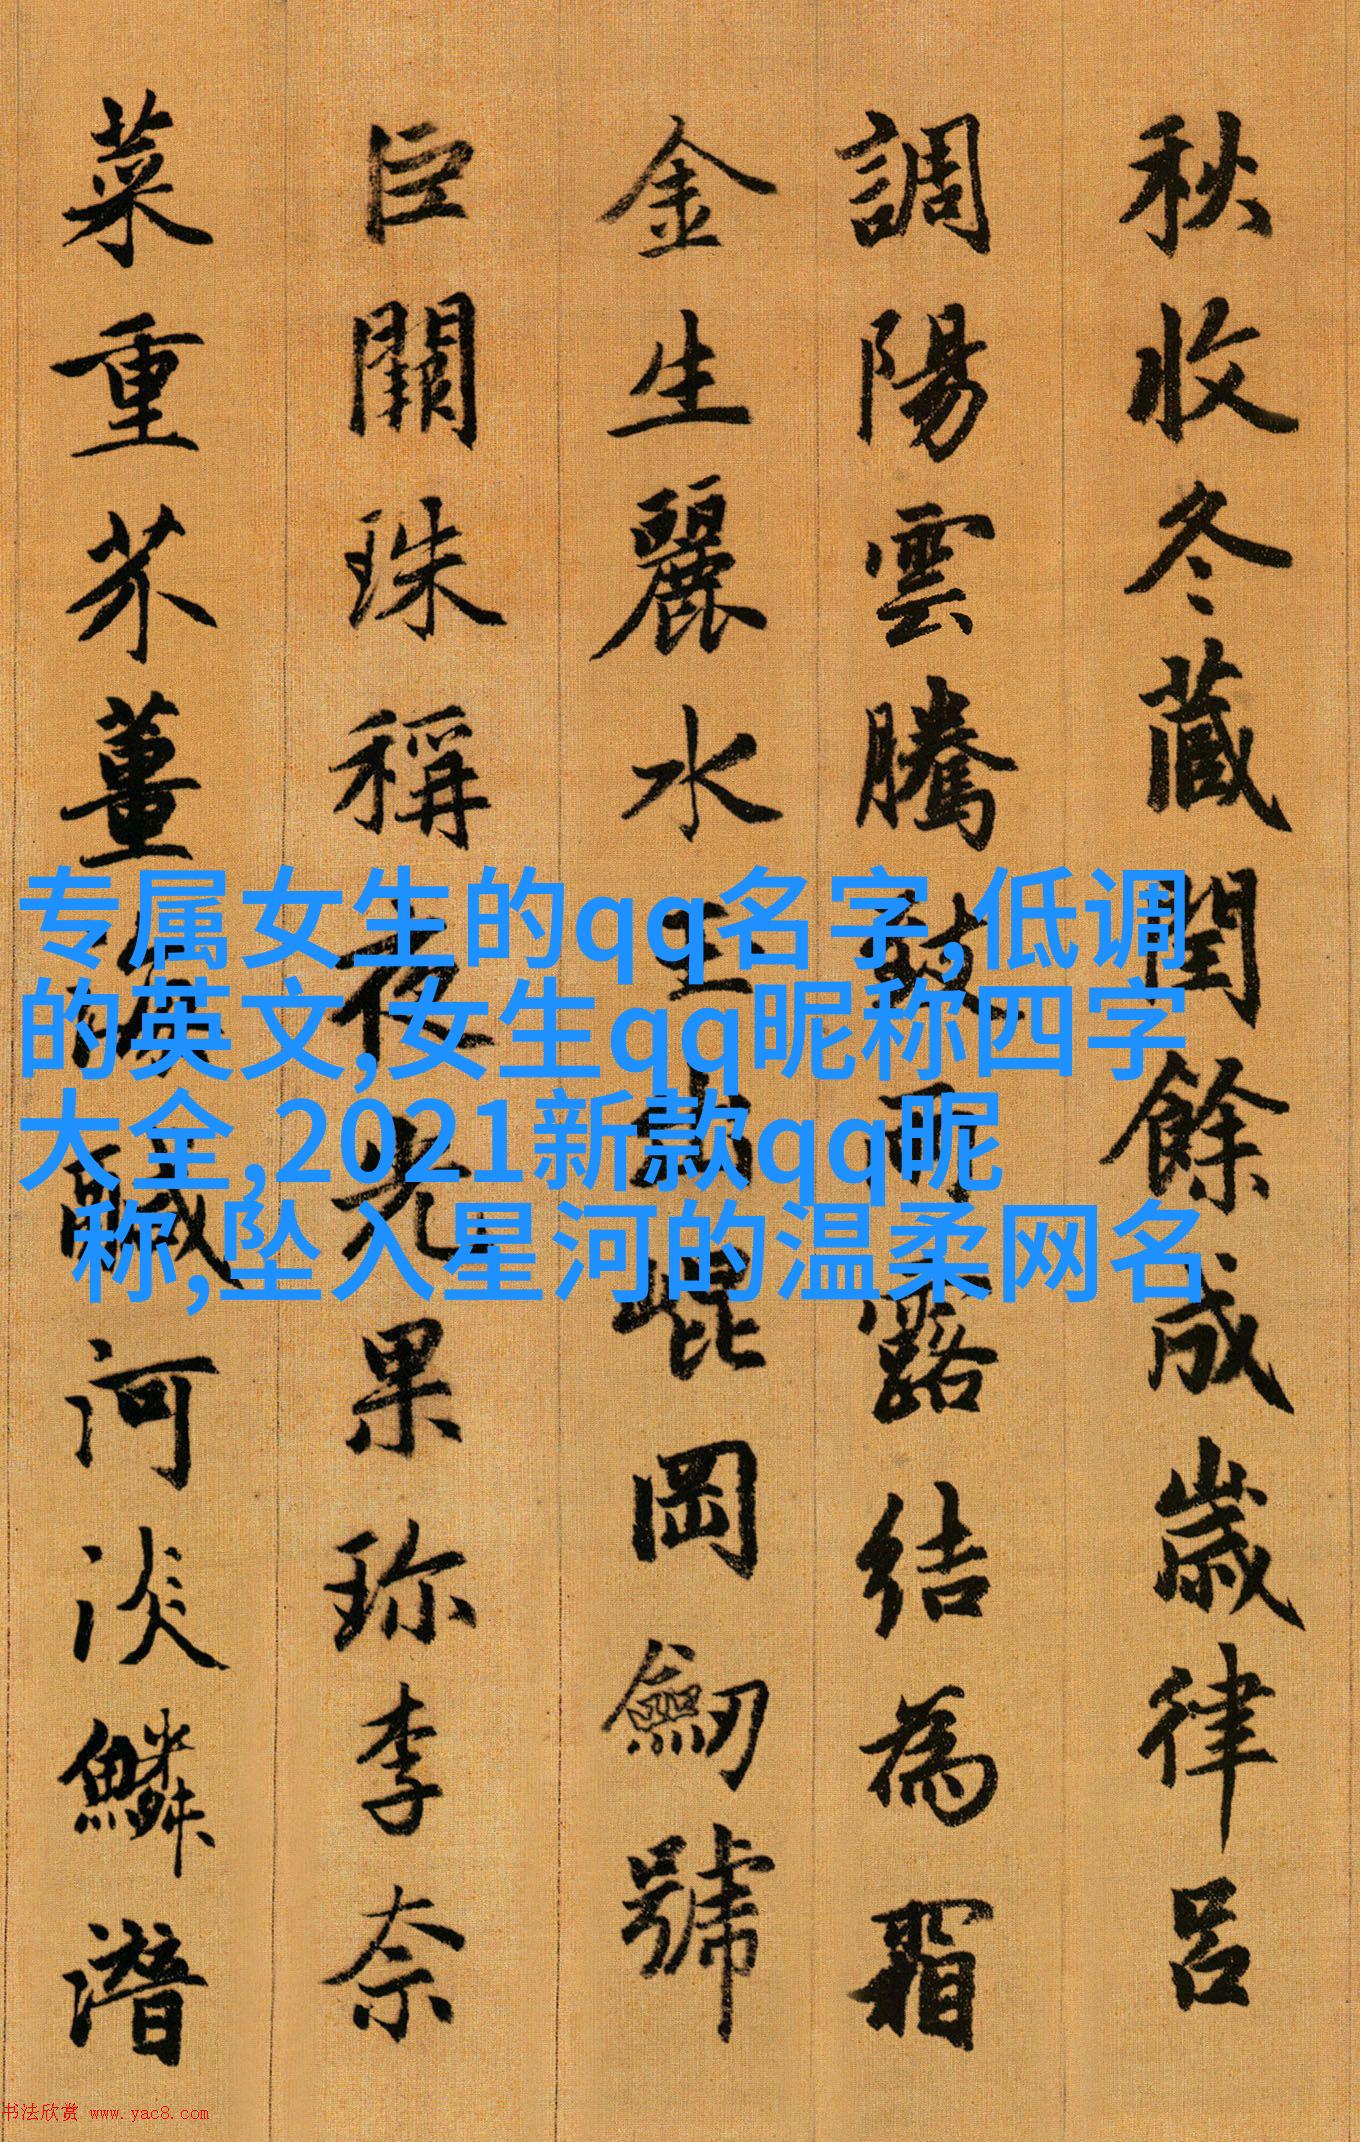 秋收冬藏閏餘成歲律呂
調陽雲騰致雨露結為霜
金生麗水玉出崐岡劒號
巨闕珠稱夜光果珎李柰
菜重芥薑海鹹河淡鱗潛
专属女生的qq名字,低调
的英文,女生qq昵称四字
大全,2021新款qq昵
称,坠入星河的温柔网名
书法欣赏 www.yac8.com